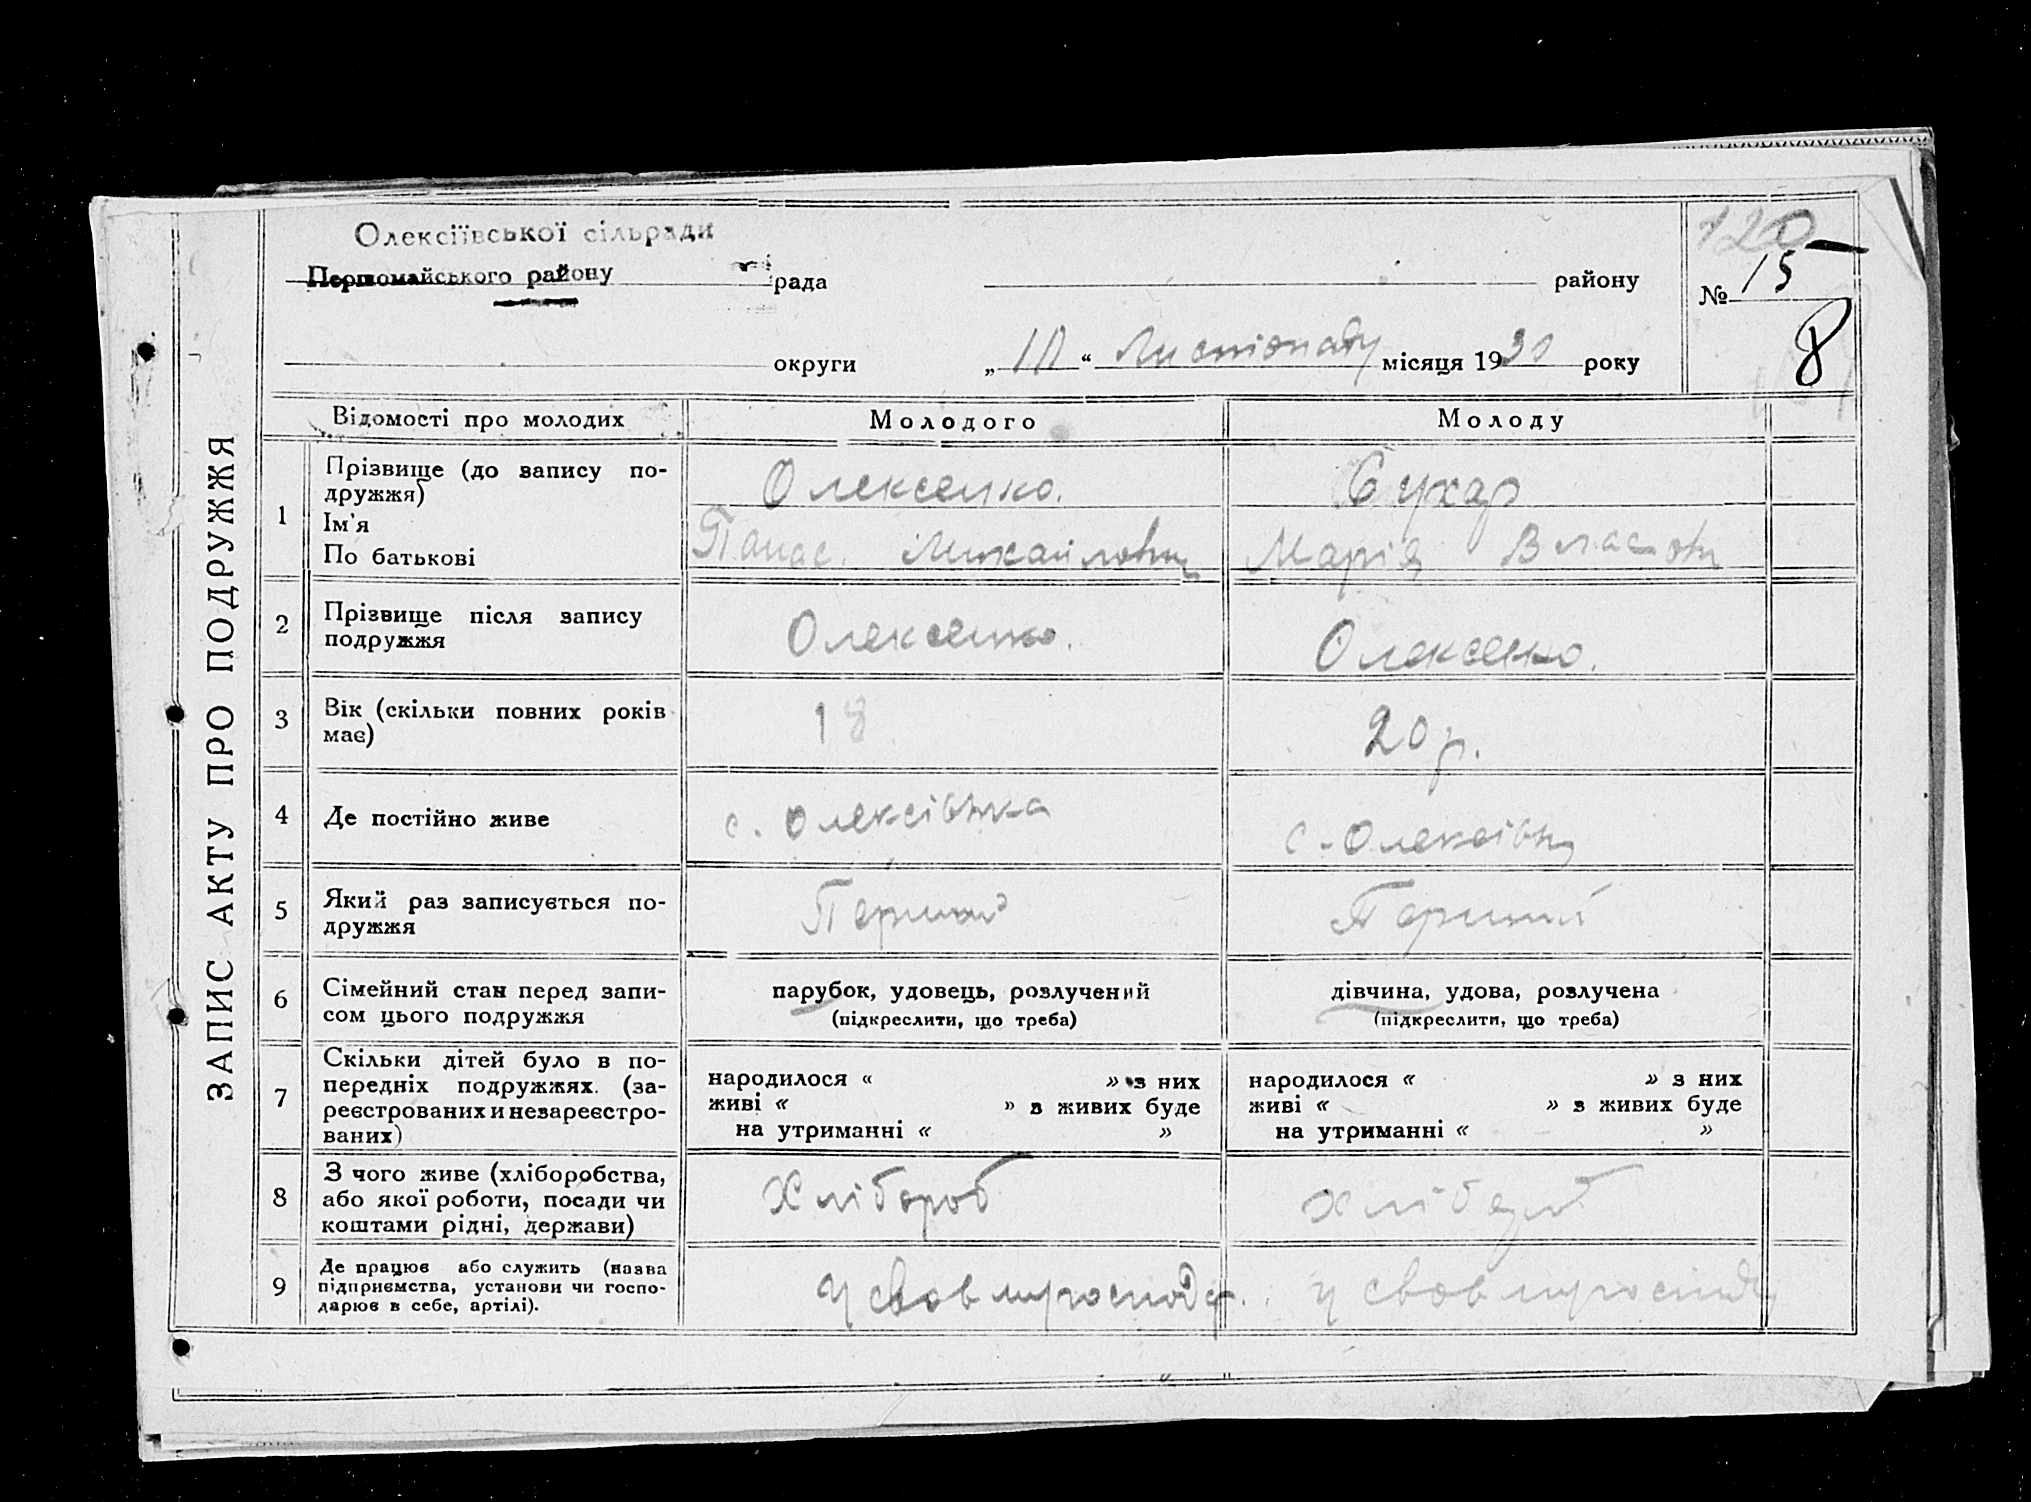 ЗАПИС АКТУ ПРО ПОДРУЖЖЯ
Олексіївської сільради
Первомайського району рада району
120
№ 15
8
округи „10“ Листопаду місяця 1930 року
Відомості про молодих Молодого Молоду
1 Прізвище (до запису по-
дружжя) Олексенко. Сухар
Ім'я
По батькові Панас. Михайлович Марія Власовн
2 Прізвище після запису
подружжя Олексенко. Олексенко.
3 Вік (скільки повних років
має) 18 20 р.
4 Де постійно живе с. Олексівка с. Олексівц
5 Який раз записується по-
дружжя Перший Перший
6 Сімейний стан перед запи-
сом цього подружжя
парубок, удовець, розлучений дівчина, удова, розлучена
(підкреслити, що треба) (підкреслити, що треба)
7 Скільки дітей було в по-
передніх подружжях. (за-
реєстрованих и незареєстро-
ваних)
народилося « » з них народилося « » з них
живі « » з живих буде живі « » з живих буде
на утриманні « » на утриманні « »
8 З чого живе (хліборобства,
або якої роботи, посади чи
коштами рідні, держави) Хлібороб
9 Де працює або служить (назва
підприємства, установи чи госпо-
дарює в себе, артілі).